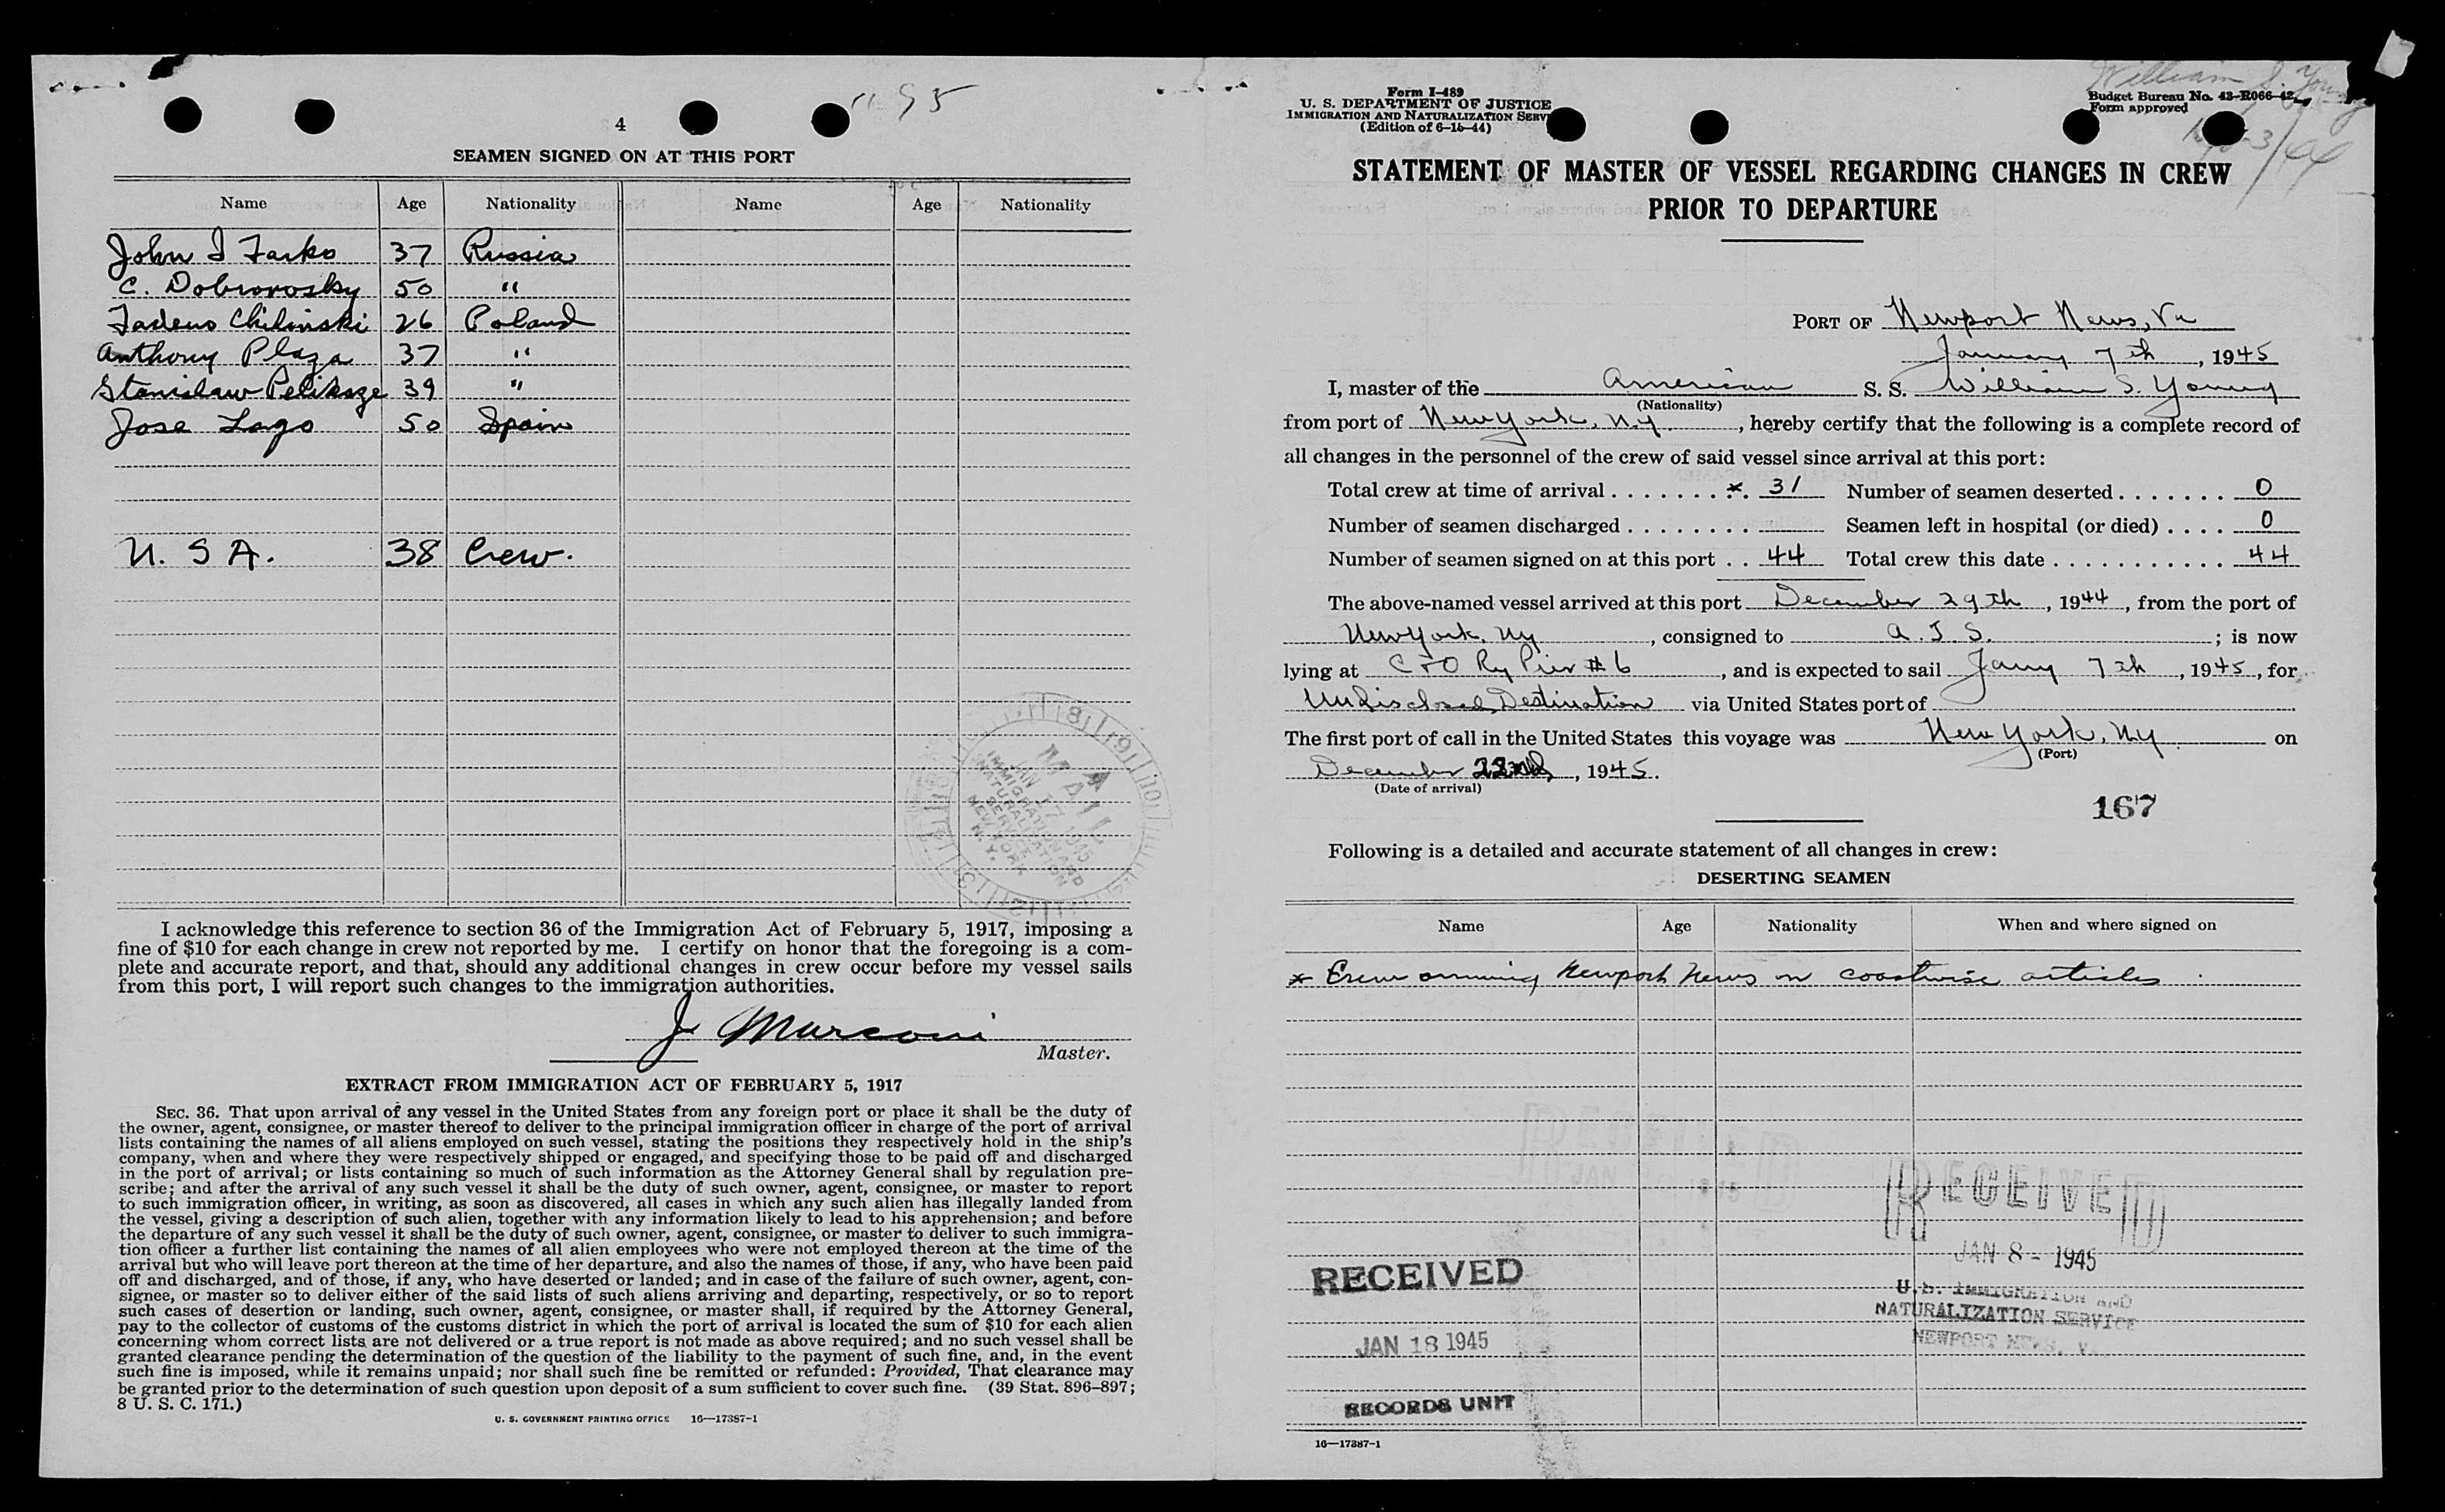 95
4
SEAMEN SIGNED ON AT THIS PORT
Name Age Nationality Name Age Nationality
John I Farko 37 Russia
C. Dobrovosky 50 "
Tadeus Chilinski 26 Poland
Anthony Plaza 37 "
Stanislaw Peliksze 39 "
Jose Lago 50 Spain
U. S A. 38 Crew.
MAIL
JAN 17 1945
IMMIGRATION AND
NATURALIZATION
SERVICE
NEW YORK
N. Y.
I acknowledge this reference to section 36 of the Immigration Act of February 5, 1917, imposing a
fine of $10 for each change in crew not reported by me. I certify on honor that the foregoing is a com-
plete and accurate report, and that, should any additional changes in crew occur before my vessel sails
from this port, I will report such changes to the immigration authorities.
J Marconi
Master.
EXTRACT FROM IMMIGRATION ACT OF FEBRUARY 5, 1917
SEC. 36. That upon arrival of any vessel in the United States from any foreign port or place it shall be the duty of
the owner, agent, consignee, or master thereof to deliver to the principal immigration officer in charge of the port of arrival
lists containing the names of all aliens employed on such vessel, stating the positions they respectively hold in the ship's
company, when and where they were respectively shipped or engaged, and specifying those to be paid off and discharged
in the port of arrival; or lists containing so much of such information as the Attorney General shall by regulation pre-
scribe; and after the arrival of any such vessel it shall be the duty of such owner, agent, consignee, or master to report
to such immigration officer, in writing, as soon as discovered, all cases in which any such alien has illegally landed from
the vessel, giving a description of such alien, together with any information likely to lead to his apprehension; and before
the departure of any such vessel it shall be the duty of such owner, agent, consignee, or master to deliver to such immigra-
tion officer a further list containing the names of all alien employees who were not employed thereon at the time of the
arrival but who will leave port thereon at the time of her departure, and also the names of those, if any, who have been paid
off and discharged, and of those, if any, who have deserted or landed; and in case of the failure of such owner, agent, con-
signee, or master so to deliver either of the said lists of such aliens arriving and departing, respectively, or so to report
such cases of desertion or landing, such owner, agent, consignee, or master shall, if required by the Attorney General,
pay to the collector of customs of the customs district in which the port of arrival is located the sum of $10 for each alien
concerning whom correct lists are not delivered or a true report is not made as above required; and no such vessel shall be
granted clearance pending the determination of the question of the liability to the payment of such fine, and, in the event
such fine is imposed, while it remains unpaid; nor shall such fine be remitted or refunded: Provided, That clearance may
be granted prior to the determination of such question upon deposit of a sum sufficient to cover such fine. (39 Stat. 896–897;
8 U. S. C. 171.)
U. S. GOVERNMENT PRINTING OFFICE 16—17387-1
Form I-489
U. S. DEPARTMENT OF JUSTICE
IMMIGRATION AND NATURALIZATION SERV
(Edition of 6-15-44)
William S. Young
Budget Bureau No. 43-R066-42
Form approved
STATEMENT OF MASTER OF VESSEL REGARDING CHANGES IN CREW
PRIOR TO DEPARTURE
PORT OF Newport News, Va
January 7th, 1945
I, master of the American S. S. William S. Young
(Nationality)
from port of New York, N.Y., hereby certify that the following is a complete record of
all changes in the personnel of the crew of said vessel since arrival at this port:
Total crew at time of arrival . . . . . . . * . 31 Number of seamen deserted . . . . . . . 0
Number of seamen discharged . . . . . . . . Seamen left in hospital (or died) . . . . 0
Number of seamen signed on at this port . . 44 Total crew this date . . . . . . . . . . . 44
The above-named vessel arrived at this port December 29th, 1944, from the port of
New York, NY, consigned to A. T. S. ; is now
lying at C+O Ry Pier #6, and is expected to sail Jany 7th, 1945, for
Undisclosed Destination via United States port of
The first port of call in the United States this voyage was New York, N.Y. on
(Port)
December 22nd, 1945.
(Date of arrival)
167
Following is a detailed and accurate statement of all changes in crew:
DESERTING SEAMEN
Name Age Nationality When and where signed on
* Crew arriving Newport News on coastwise articles
RECEIVED
JAN 8 - 1945
U. S. IMMIGRATION AND
NATURALIZATION SERVICE
NEWPORT NEWS, V
RECEIVED
JAN 18 1945
RECORDS UNIT
16—17387-1